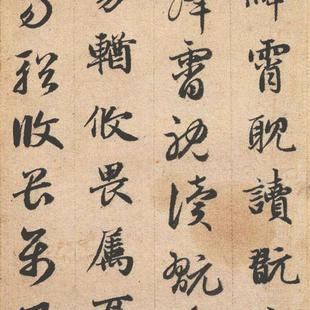 霄耽讀翫
絳霄耽讀翫
易輶攸畏屬耳
易輶攸畏屬